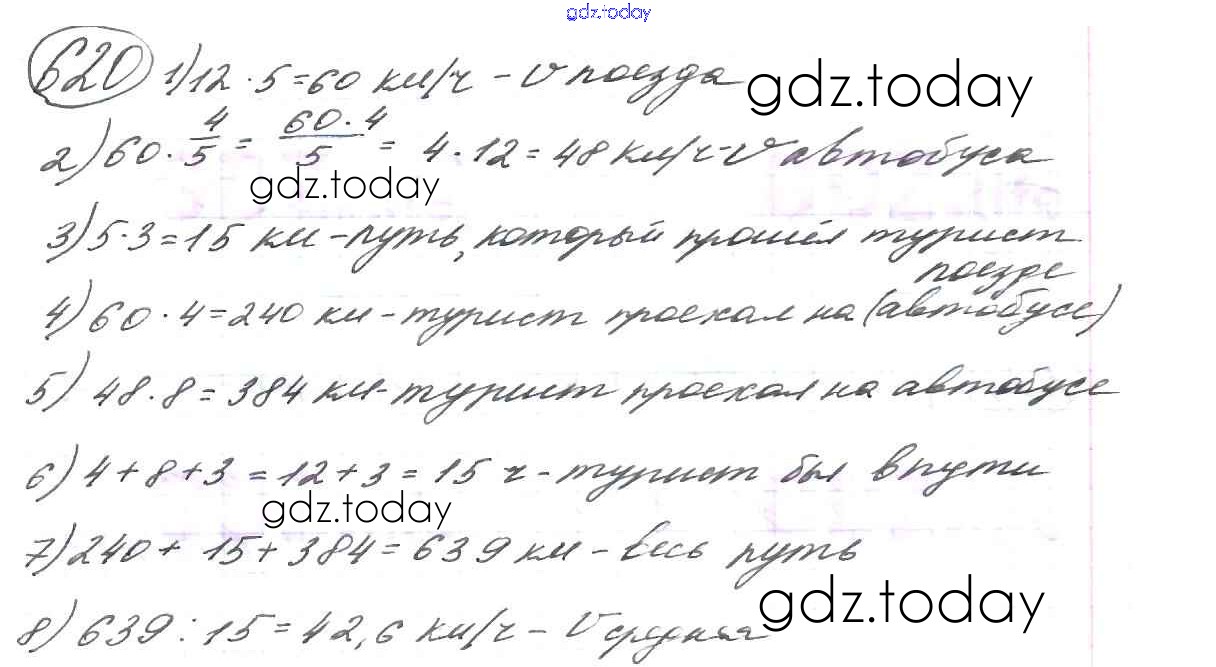 gdz.today
620 1) 12 · 5 = 60 км/ч - v поезда gdz.today
2) 60 · 4/5 = 60 · 4/5 = 4 · 12 = 48 км/ч - v автобуса
gdz.today
3) 5 · 3 = 15 км - путь, который прошёл турист
поезде
4) 60 · 4 = 240 км - турист проехал на (автобусе)
5) 48 · 8 = 384 км - турист проехал на автобусе
6) 4 + 8 + 3 = 12 + 3 = 15 ч - турист был в пути
gdz.today
7) 240 + 15 + 384 = 639 км - весь путь
gdz.today
8) 639 : 15 = 42,6 км/ч - v средняя